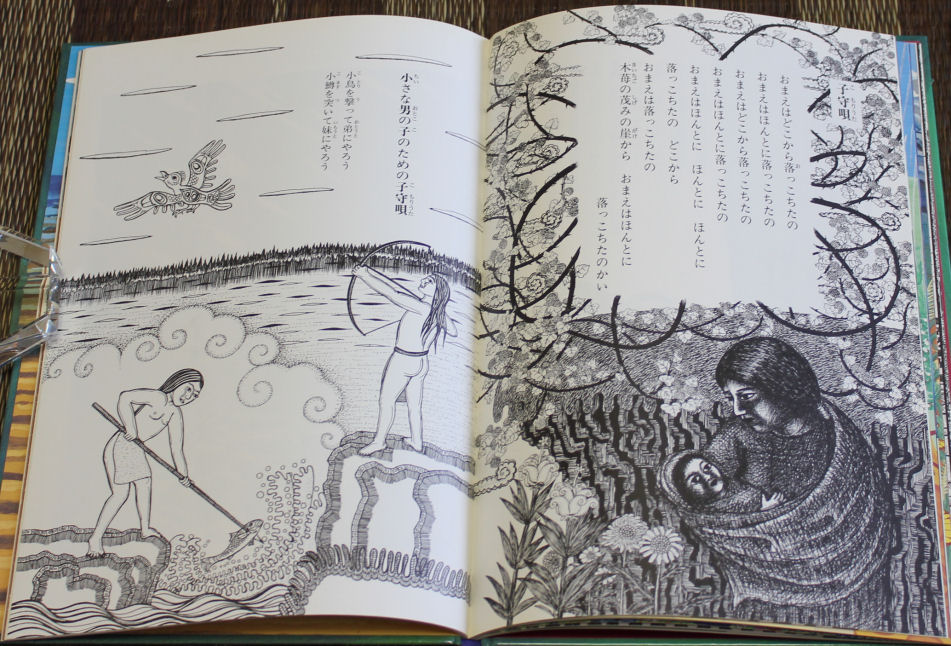 子守唄
おまえはどこから落っこちたの
おまえはほんとに落っこちたの
おまえはどこから落っこちたの
おまえはほんとに落っこちたの
おまえはほんとに　ほんとに　ほんとに
落っこちたの　どこから
おまえは落っこちたの
木苺の茂みの崖から　おまえはほんとに
落っこちたのかい
小さな男の子のための子守唄
小鳥を撃って弟にやろう
小鱒を突いて妹にやろう